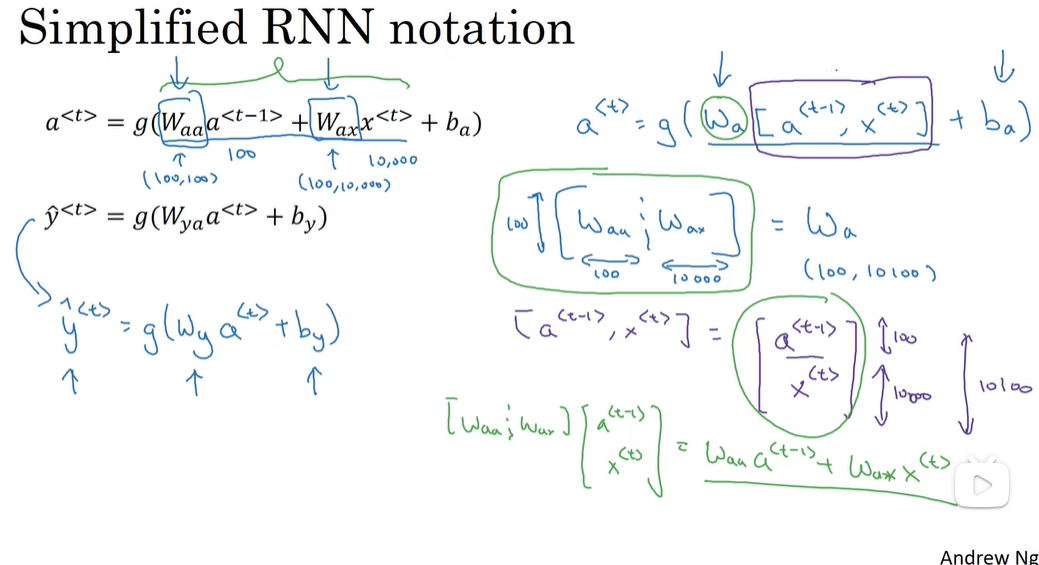 Simplified RNN notation
a^{<t>} = g(W_{aa}a^{<t-1>} + W_{ax}x^{<t>} + b_a)
↑ 100 ↑ 10,000
(100,100) (100,10,000)
ŷ^{<t>} = g(W_{ya}a^{<t>} + b_y)
ŷ^{<t>} = g(W_y a^{<t>} + b_y)
↑ ↑ ↑
a^{<t>} = g(W_a [a^{<t-1>}, x^{<t>}] + b_a)
100 ↕ [W_{aa} ; W_{ax}] = W_a
100 10000 (100, 10100)
[a^{<t-1>}, x^{<t>}] = [a^{<t-1>} ↕ 100
x^{<t>}] ↕ 10000 ↕ 10100
[W_{aa} ; W_{ax}] [a^{<t-1>}
x^{<t>}] = W_{aa} a^{<t-1>} + W_{ax} x^{<t>}
Andrew Ng